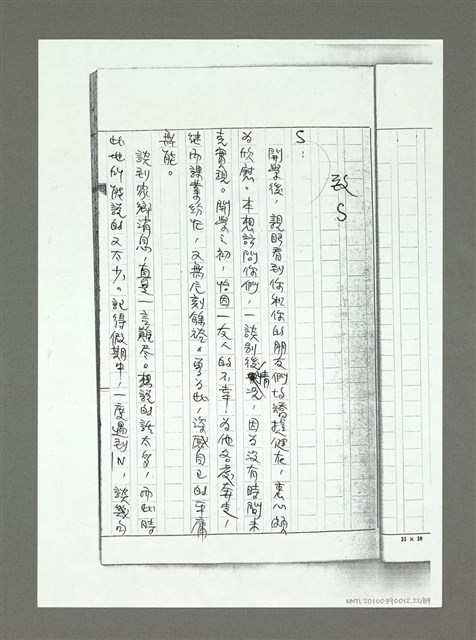 致S
S:
開學後，親眼看到你和你的朋友們均矯捷健在，衷心頗
為欣慰。本想訪問你們，一談別後情況，因為沒有時間未
克實現。開學之初，恰因一友人的不幸，為他各處奔走，
繼而課業紛忙，又無片刻餘裕。為此，深感自己的平庸
無能。
談到家鄉消息，真是一言難尽。想說的話太多，而此時
此地所能說的又太少。記得假期中，一度遇到N，談幾句
25 × 20
NMTL20100890012.22/89